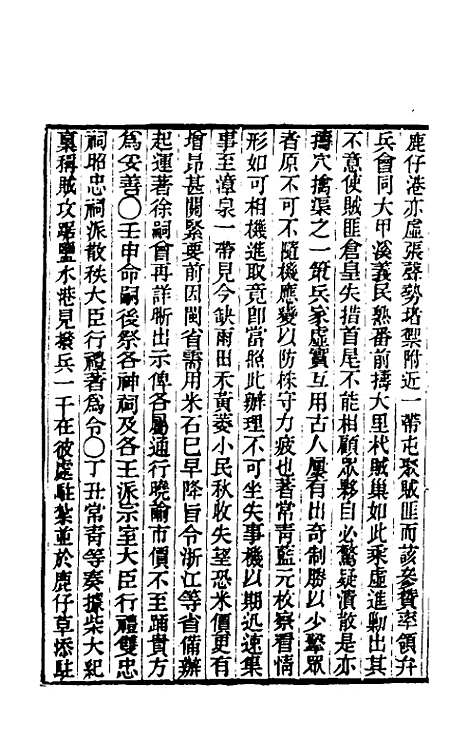 鹿仔港亦虛張聲勢堵禦附近一帶屯聚賊匪而該參贊率領弁
兵會同大甲溪義民熟番前擣大里杙賊巢如此乘虛進勦出其
不意使賊匪倉皇失措首尾不能相顧眾夥自必驚疑潰散是亦
擣穴擒渠之一策兵家虛實互用古人屢有出奇制勝以少擊眾
者原不可不隨機應變以防株守力疲也著常青藍元枚察看情
形如可相機進取竟卽當照此辦理不可坐失事機以期迅速集
事至漳泉一帶見今缺雨田禾黃萎小民秋收失望恐米價更有
增昂甚關緊要前因閩省需用米石巳早降旨令浙江等省備辦
起運著徐嗣曾再詳晰出示俾各屬通行曉諭市價不至踊貴方
爲妥善〇壬申命嗣後祭各神祠及各王派宗至大臣行禮雙忠
祠昭忠祠派散秩大臣行禮著爲令〇丁丑常青等奏據柴大紀
稟稱賊攻鹽水港見撥兵一千在彼處駐紮並於鹿仔草添駐